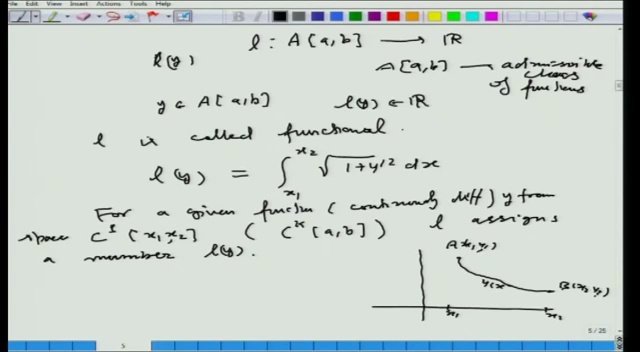 File Edit View Insert Actions Tools Help
l : A[a,b] ⟶ ℝ
l(y)
A[a,b] — admissible class of functions
y ∈ A[a,b]   l(y) ∈ ℝ
l is called functional.
l(y) = ∫_{x₁}^{x₂} √(1+y'²) dx
For a given function (continuously diff) y from
space C¹[x₁,x₂] (Cᵏ[a,b]) l assigns
a number l(y).
A(x₁,y₁)
y(x)
B(x₂,y₂)
x₁ x₂
5 5/25